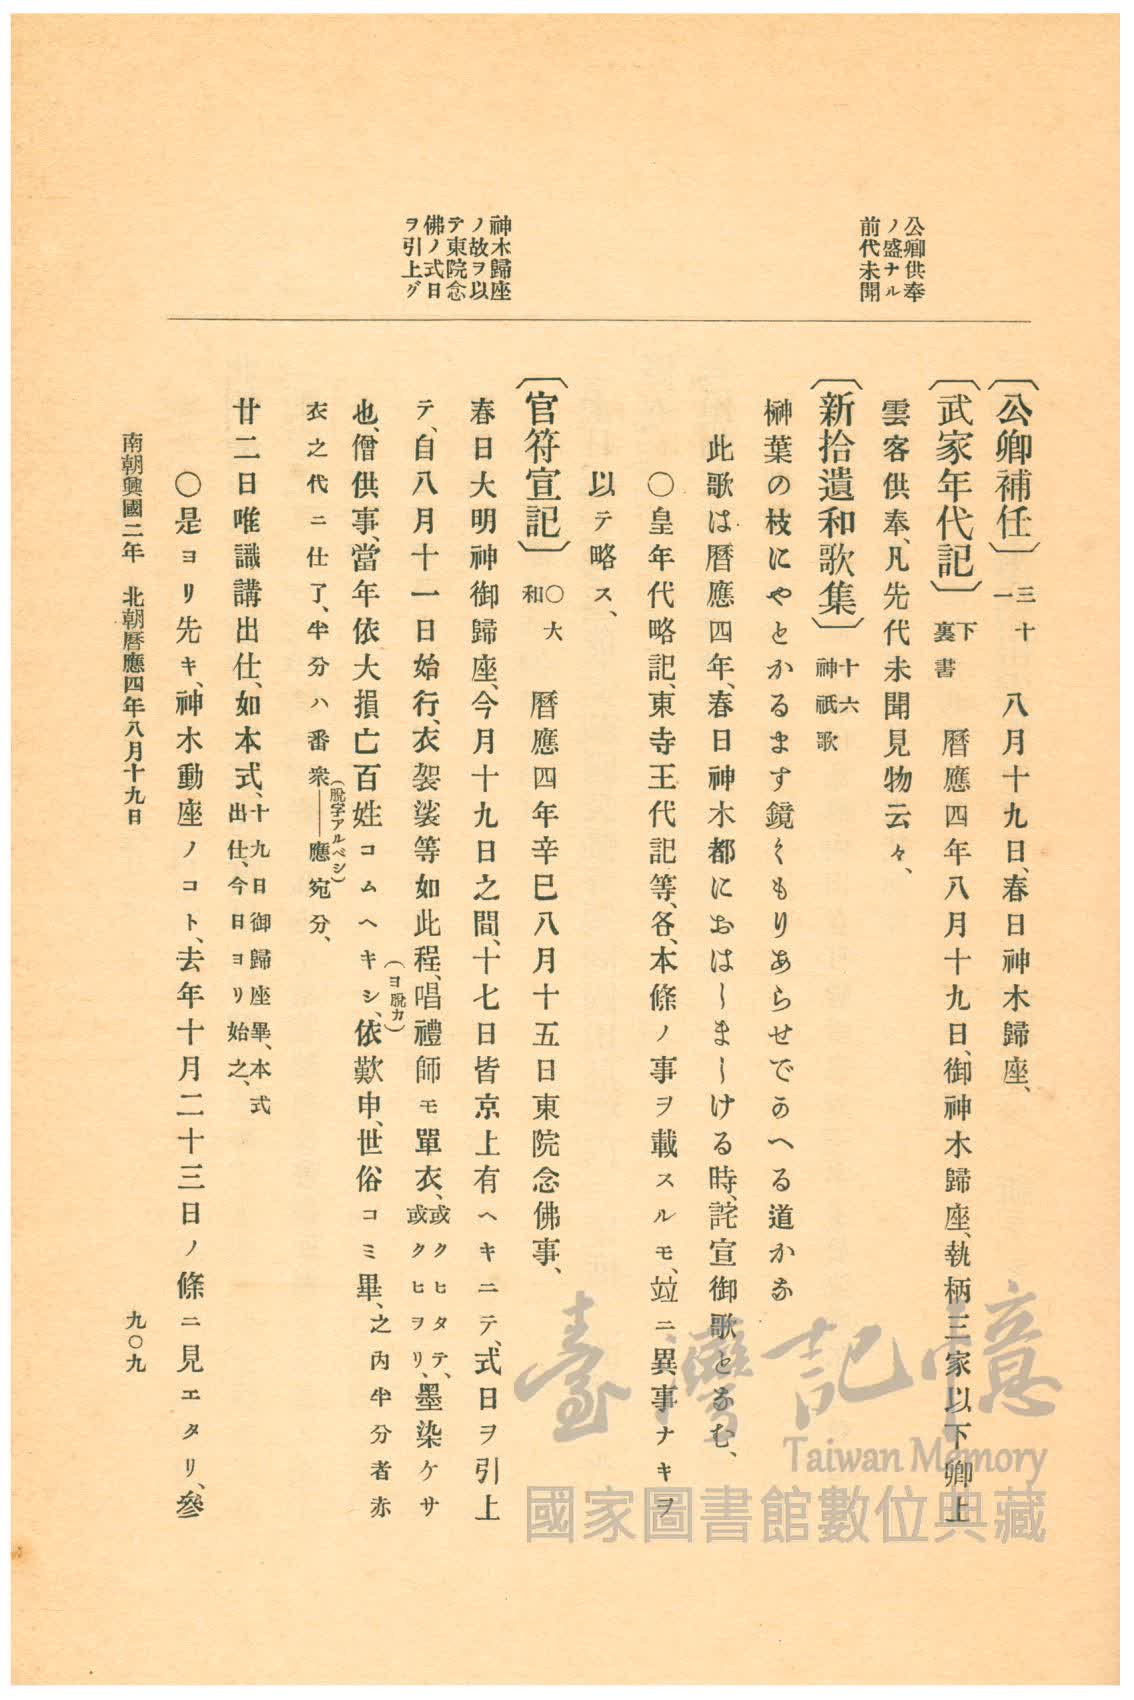 公卿供奉
ノ盛ナル
前代未聞
神木歸座
ノ故ヲ以
テ東院念
佛ノ式日
ヲ引上グ
〔公卿補任〕三十一 八月十九日、春日神木歸座、
〔武家年代記〕下裏書 曆應四年八月十九日、御神木歸座、執柄三家以下卿上
雲客供奉、凡先代未聞見物云々、
〔新拾遺和歌集〕十六神祇歌
榊葉の枝にやとかるます鏡くもりあらせてあへる道かな
此歌は曆應四年、春日神木都におはしましける時、詫宣御歌となむ、
〇皇年代略記、東寺王代記等、各、本條ノ事ヲ載スルモ、竝ニ異事ナキヲ
以テ略ス、
〔官符宣記〕〇大和 曆應四年辛巳八月十五日東院念佛事、
春日大明神御歸座、今月十九日之間、十七日皆京上有ヘキニテ、式日ヲ引上
テ、自八月十一日始行、衣袈裟等如此程、唱禮師モ單衣、或クヒタテ、或クヒヲリ、墨染ケサ
(ヨ脫カ)
也、僧供事、當年依大損亡百姓コムヘキシ、依歎申、世俗コミ畢、之內半分者赤
衣之代ニ仕了、半分ハ番衆——應宛分、
(脫字アルベシ)
廿二日唯識講出仕、如本式、十九日御歸座畢、本式出仕、今日ヨリ始之、
〇是ヨリ先キ、神木動座ノコト、去年十月二十三日ノ條ニ見エタリ、參
南朝興國二年 北朝曆應四年八月十九日
九〇九
臺灣記憶
Taiwan Memory
國家圖書館數位典藏